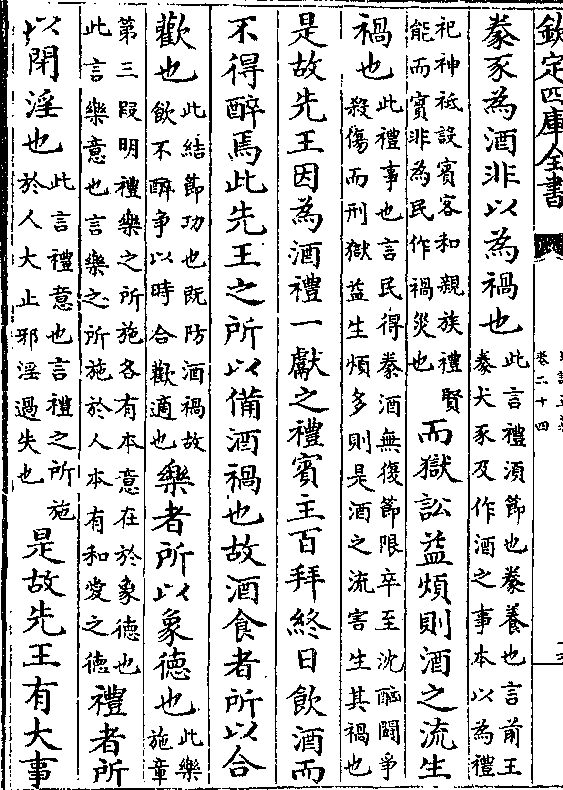 欽定四庫全書
卷二十四
豢豕為酒非以為禍也
此言禮湏節也豢養也言前王
豢犬豕及作酒之事本以為禮
祀神祗設賓客和親族禮賢
能而實非為民作禍災也
而獄訟益煩則酒之流生
禍也
此禮事也言民得豢酒無復節限卒至沈酗鬪爭
殺傷而刑獄益生煩多則是酒之流害生其禍也
是故先王因為酒禮一獻之禮賓主百拜終日飲酒而
不得醉焉此先王之所以備酒禍也故酒食者所以合
歡也
此結節功也既防酒禍故
飲不醉爭以時合歡適也
樂者所以象德也
此樂
施章
第三段明禮樂之所施各有本意在於象德也
此言樂意也言樂之所施於人本有和愛之德
禮者所
以閉淫也
此言禮意也言禮之所施
於人大止邪淫過失也
是故先王有大事